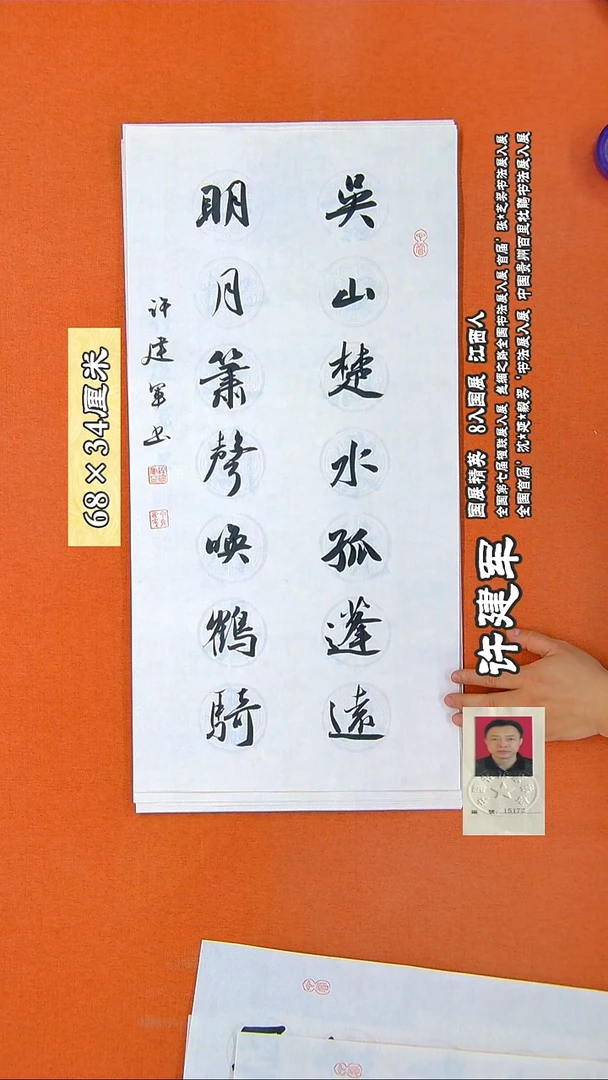 吳山楚水孤蓬遠
明月簫聲喚鶴騎
许建军书
68×34厘米
许建军
国展精英 8入国展 江西人
全国第七届楹联展入展 丝绸之路全国书法展入展 首届'张★芝奖书法展入展
全国首届'沈★延★毅奖'书法展入展 中国贵州百里杜鹃书法展入展
编 号: 15172